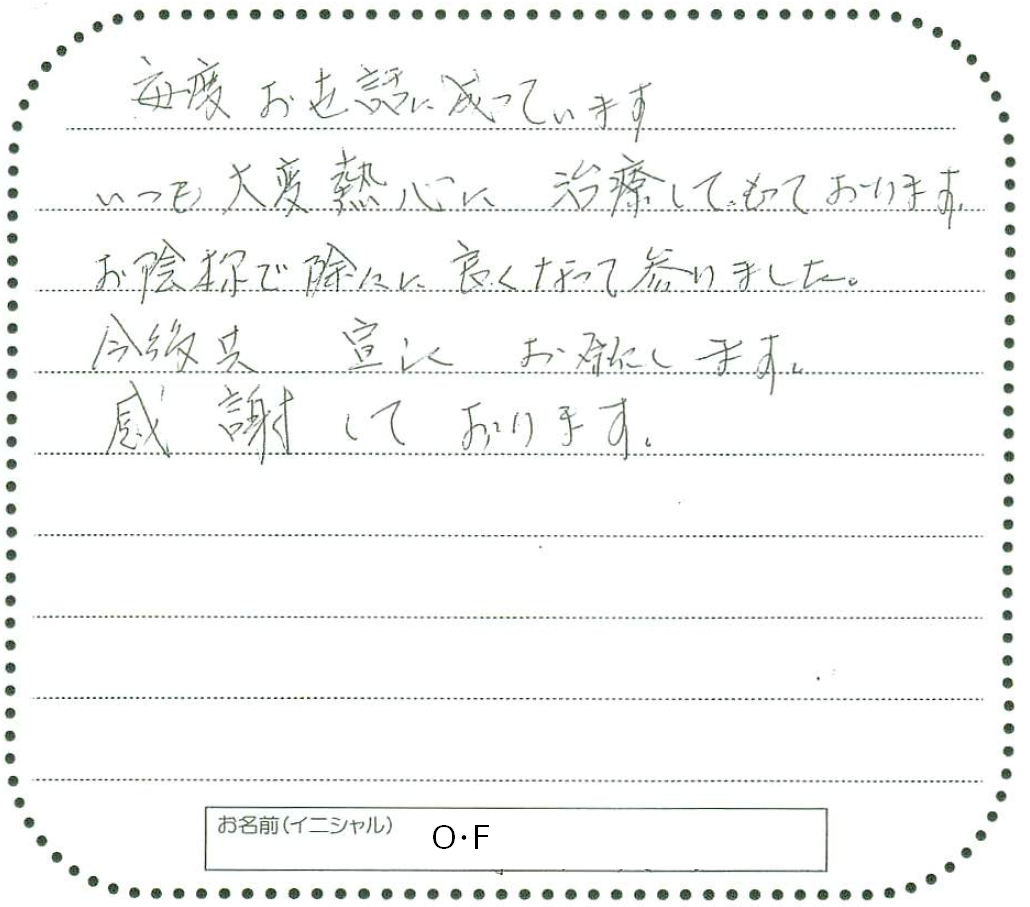 毎度 お世話に成っています
いつも 大変 熱心に 治療してもらっております。
お陰様で 除々に 良くなって参りました。
今後共 宜しく お願いします。
感謝しております。
お名前(イニシャル) O・F